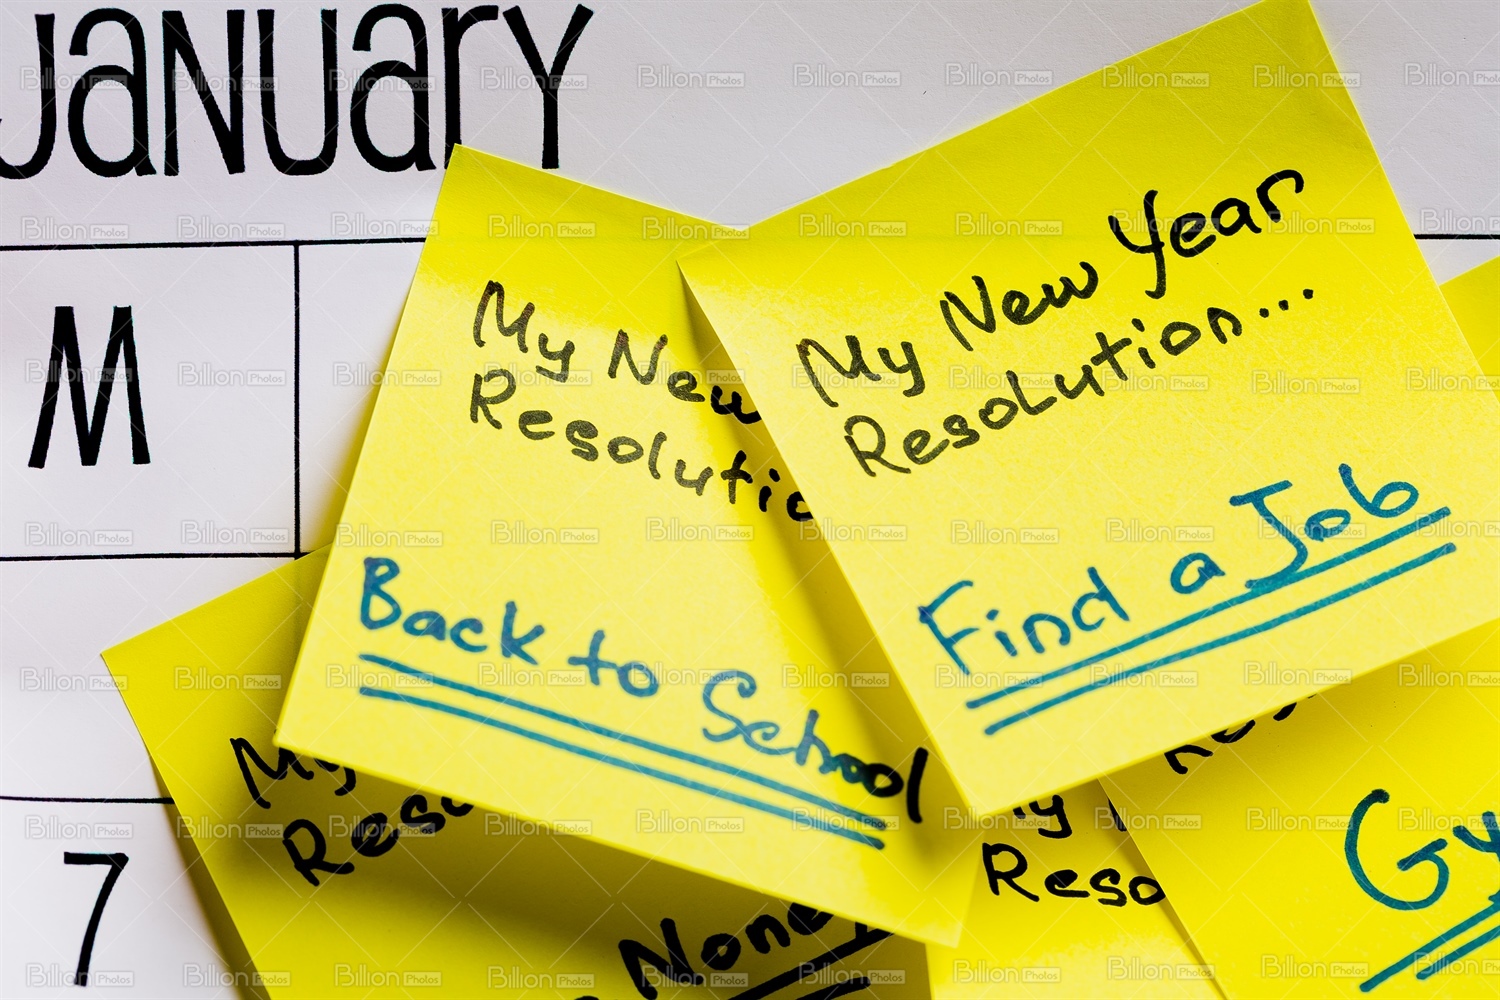 January
M
7
My New Year
Resolution...
Find a Job
My New
Resolutio
Back to School
My
Reso
None
Reso
Gy
Billion Photos